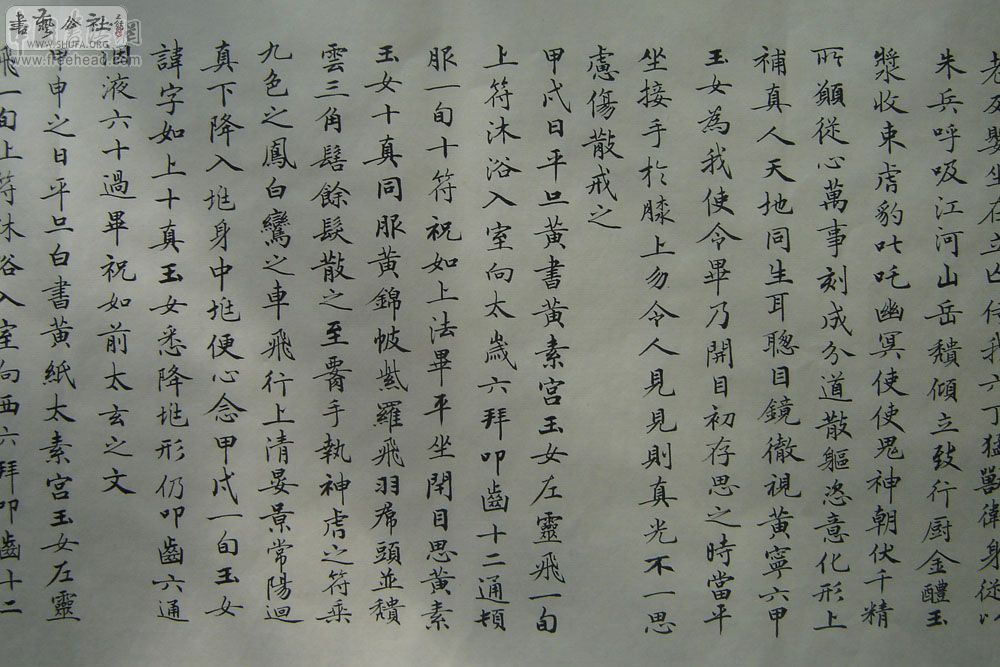 老及嬰坐在立亡侍我六丁猛獸衛身從以
朱兵呼吸江河山岳穨傾立致行厨金醴玉
漿收束虎豹叱吒幽冥使使鬼神朝伏千精
所願從心萬事刻成分道散軀恣意化形上
補真人天地同生耳聰目鏡徹視黃寧六甲
玉女為我使令畢乃開目初存思之時當平
坐接手於膝上勿令人見見則真光不一思
慮傷散戒之
甲戌日平旦黃書黃素宮玉女左靈飛一旬
上符沐浴入室向太歲六拜叩齒十二通頓
服一旬十符祝如上法畢平坐閉目思黃素
玉女十真同服黃錦帔紫羅飛羽帬頭並穨
雲三角髻餘髮散之至腰手執神虎之符乘
九色之鳳白鸞之車飛行上清晏景常陽迴
真下降入垗身中垗便心念甲戌一旬玉女
諱字如上十真玉女悉降垗形仍叩齒六通
咽液六十過畢祝如前太玄之文
甲申之日平旦白書黃紙太素宮玉女左靈
飛一旬上符沐浴入室向西六拜叩齒十二
書藝公社
WWW.SHUFA.ORG
www.freehead.com